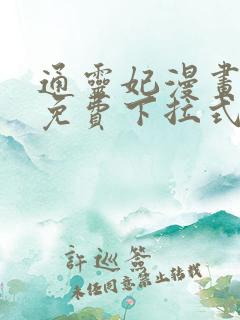 通靈妃漫畫
免費下拉式
許巡簽
未经同意禁止转载